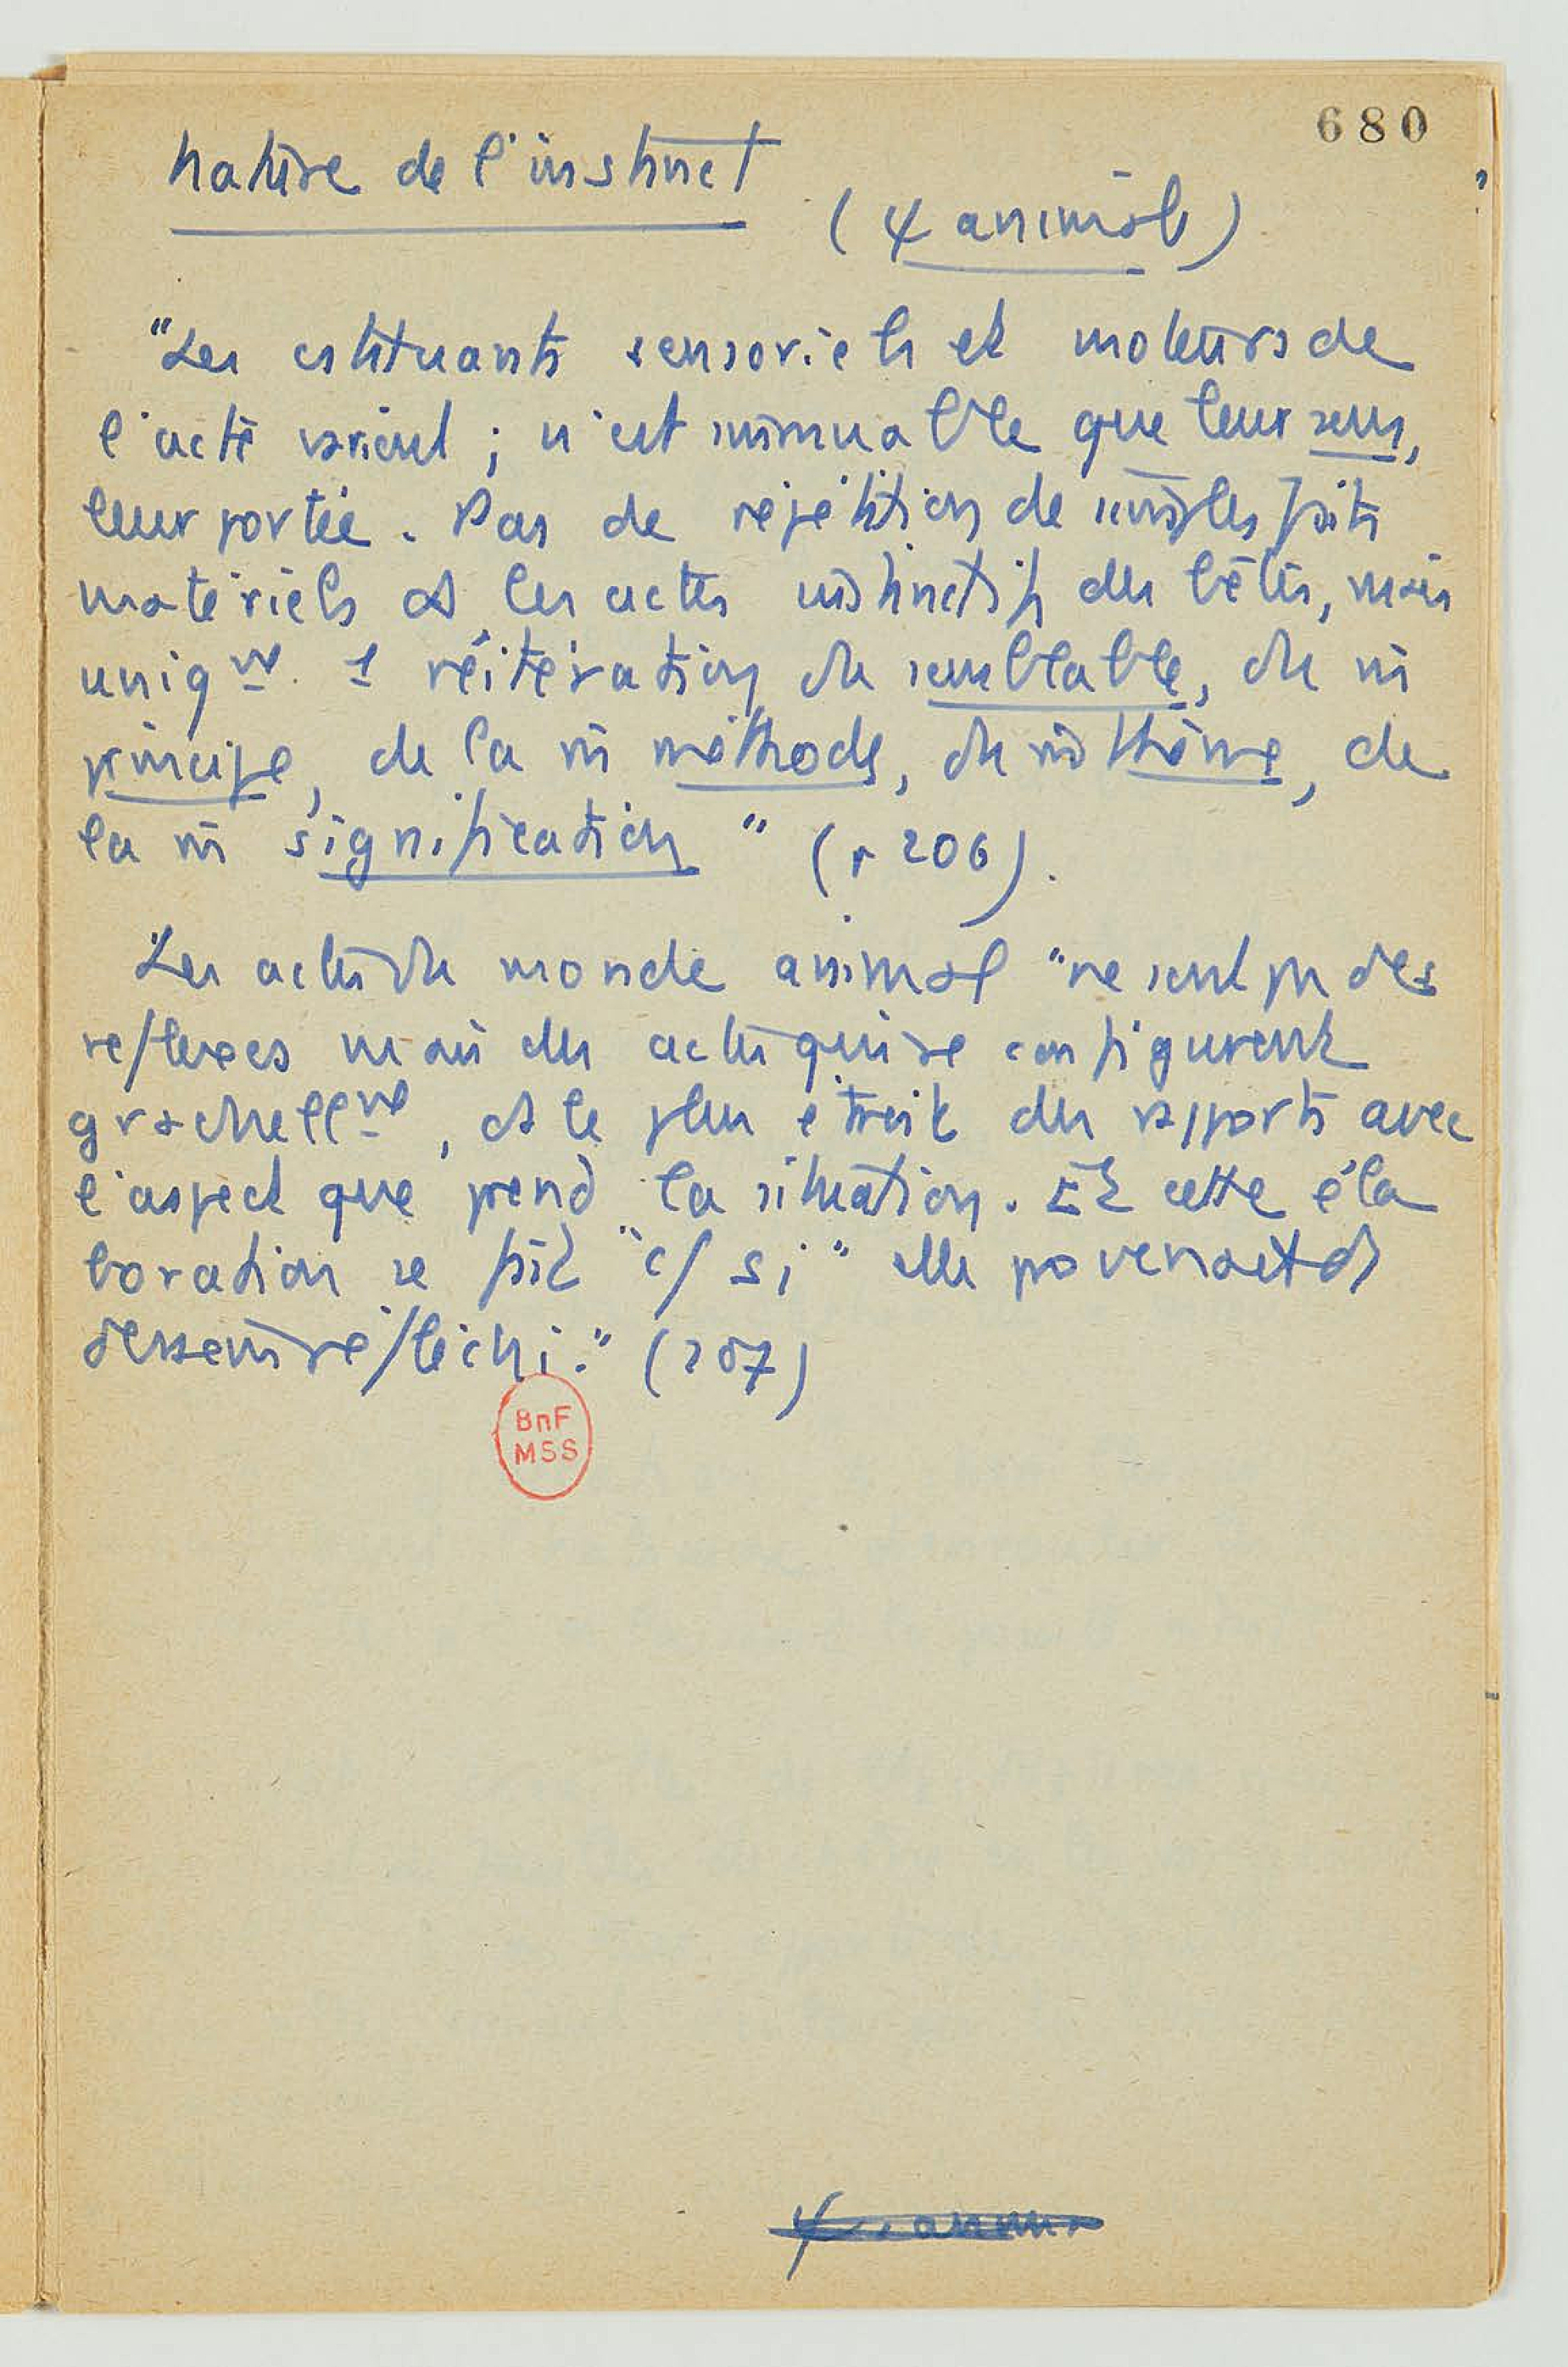 680
Nature de l'instinct
(ψ animale)
"Les cstituants sensoriels et moteurs de
l'acte varient ; n'est immuable que leur sens,
leur portée. Pas de répétition de simples faits
matériels ds les actes instinctifs des bêtes, mais
uniqmt. 1 réitération du semblable, du m̄
principe, de la m̄ méthode, du m̄ thème, de
la m̄ signification" (p 206).
Les actes du monde animal "ne sont pas des
réflexes mais des actes qui se configurent
graduellmt, ds le plus étroit des rapports avec
l'aspect que prend la situation. Et cette éla
boration se fait "c/ si" elle provenait d'1
dessein réfléchi." (207)
BnF
MSS